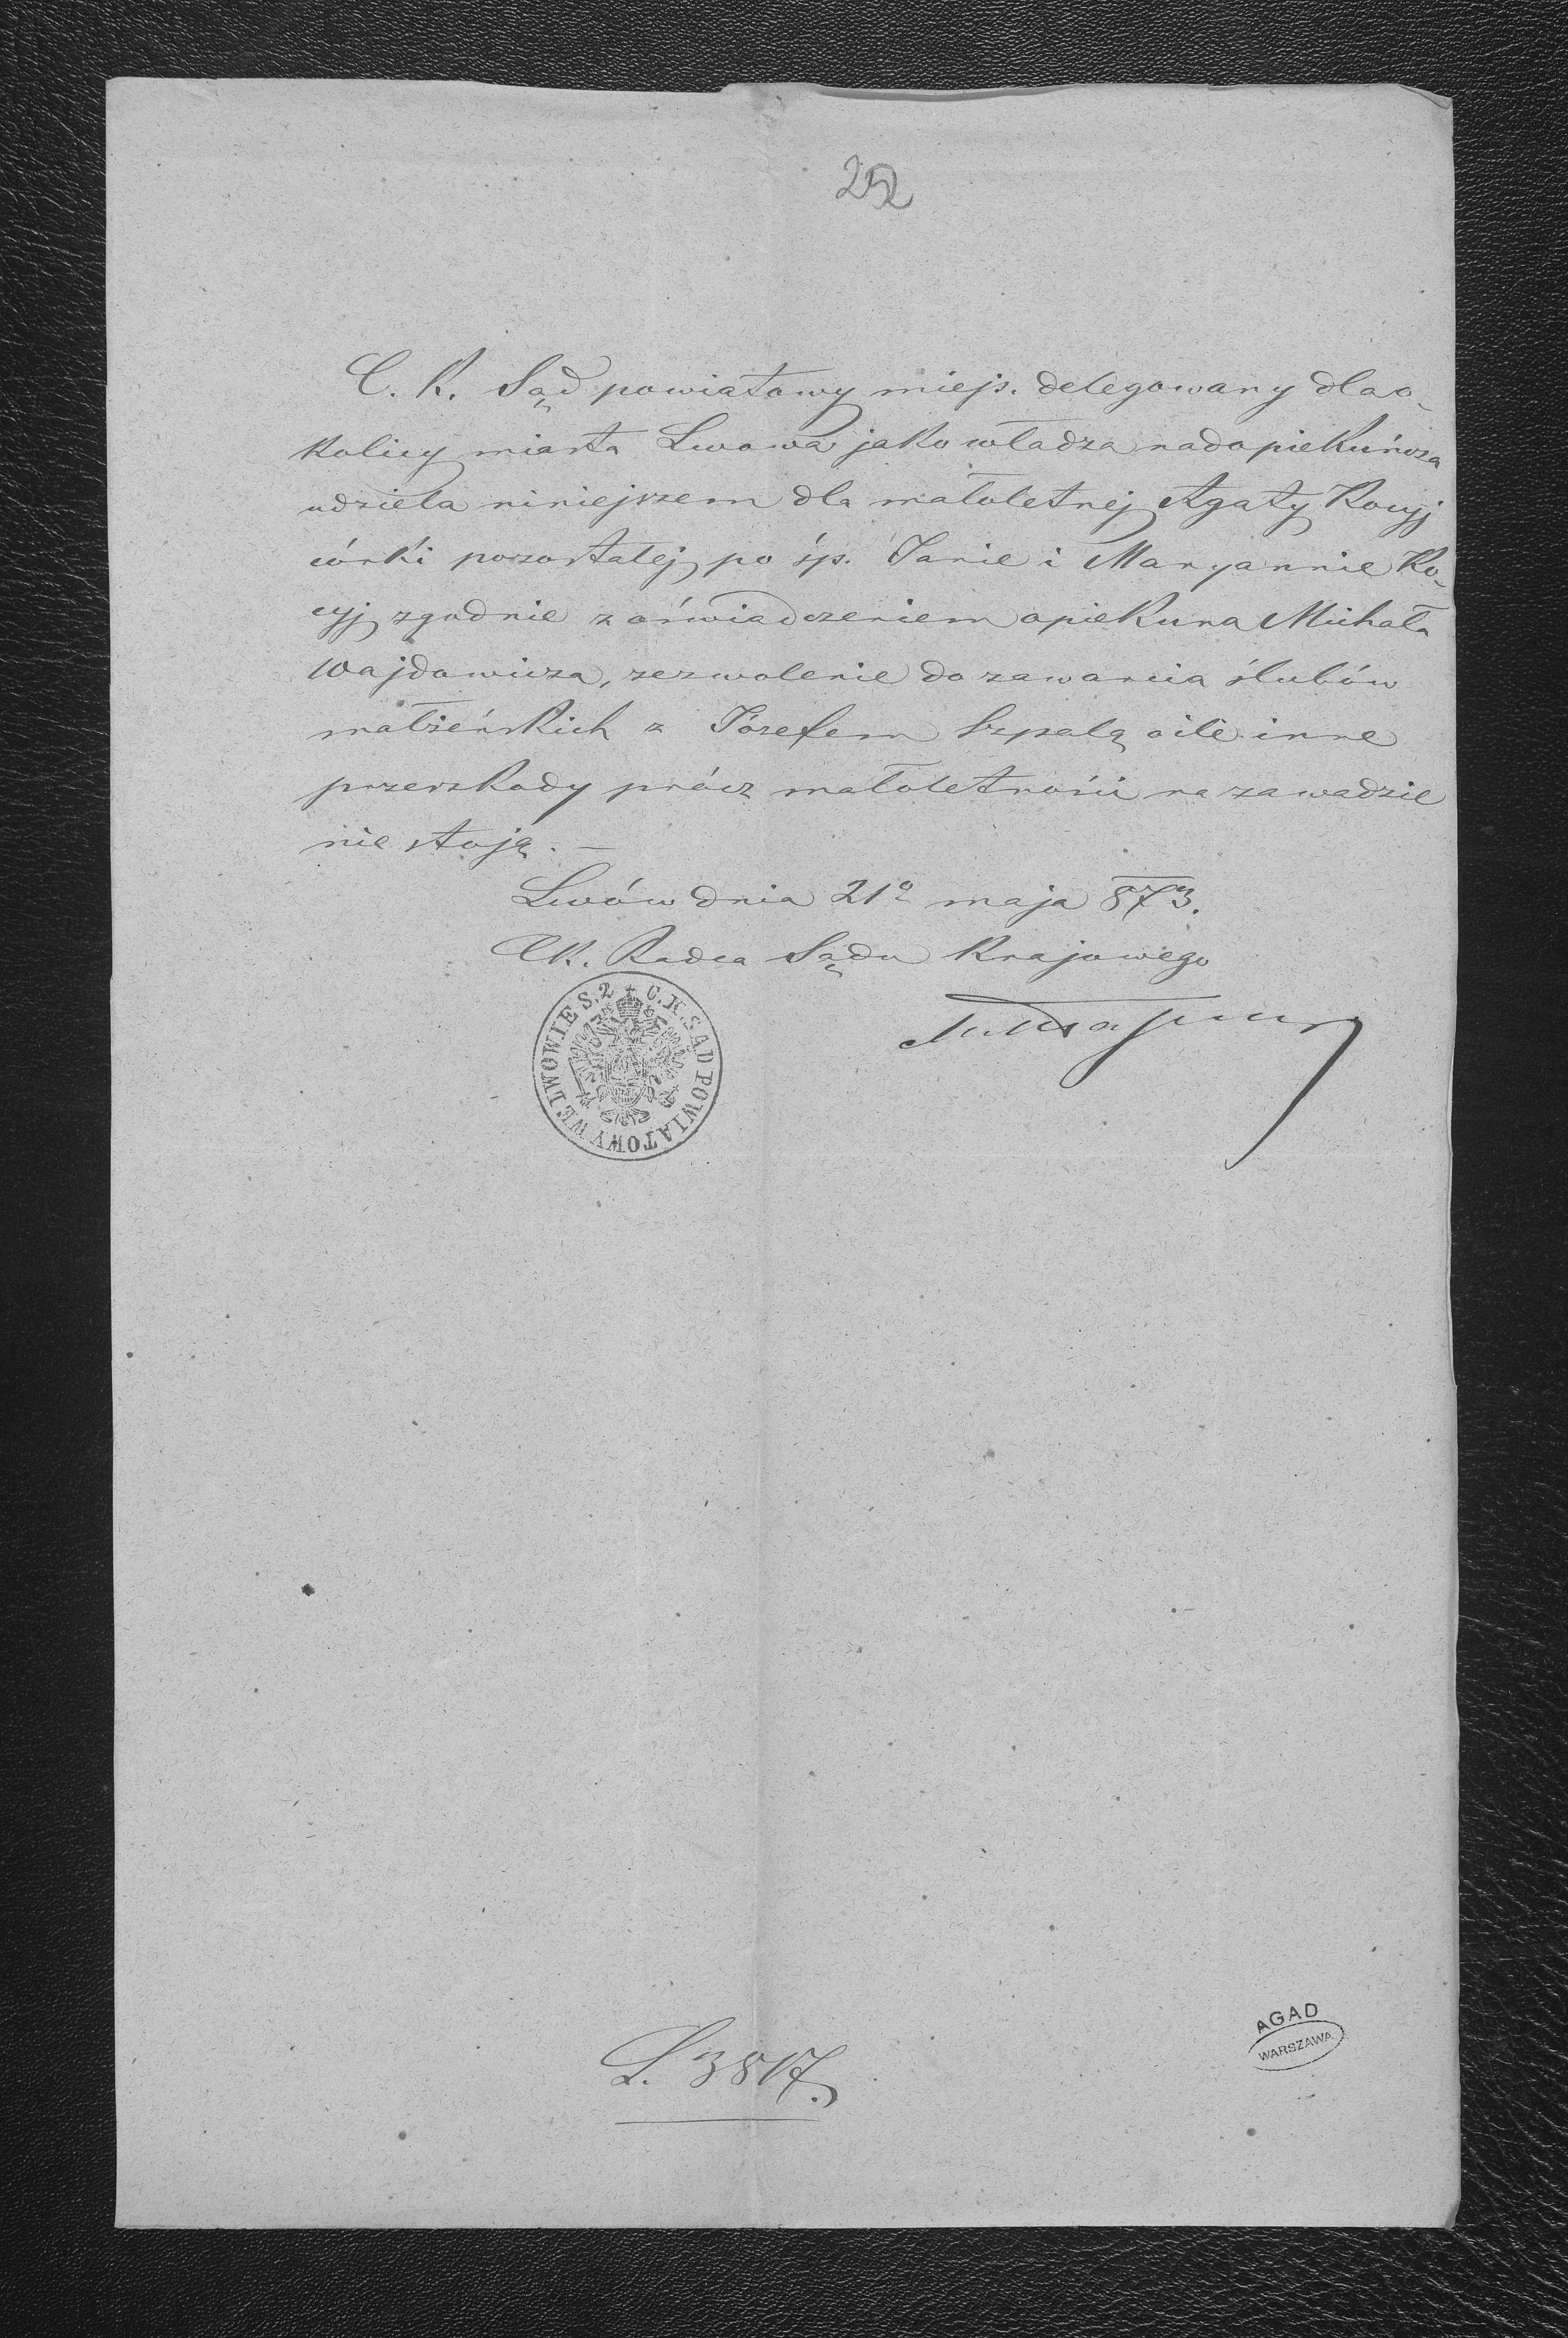 252
C. K. Sąd powiatowy miejs. delegowany dla o-
kolicy miasta Lwowa jako władza nadopiekuńcza
udziela niniejszem dla małoletniej Agaty Kocyj
córki pozostałej po śp. Janie i Maryannie Ko-
cyj zgodnie z oświadczeniem opiekuna Michała
Wajdowicza, zezwolenie do zawarcia ślubów
małżeńskich z Józefem Szpalą o ile inne
przeszkody prócz małoletności na zawadzie
nie stoją. —
Lwów dnia 21º maja 873.
CK. Radca Sądu Krajowego
C. K. SĄD POWIATOWY WE LWOWIE S. 2
L. 3817.
AGAD
WARSZAWA